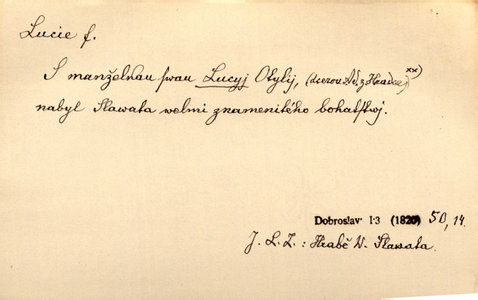 Lucie f.
S manželkau swau Lucyj Otylij, (dcerou Ad. z Hradce, xx)
nabyl Slawata welmi znamenitého bohatstwj.
Dobroslav I3 (1820) 50, 14.
J. L. Z.: Hrabě W. Slawata.